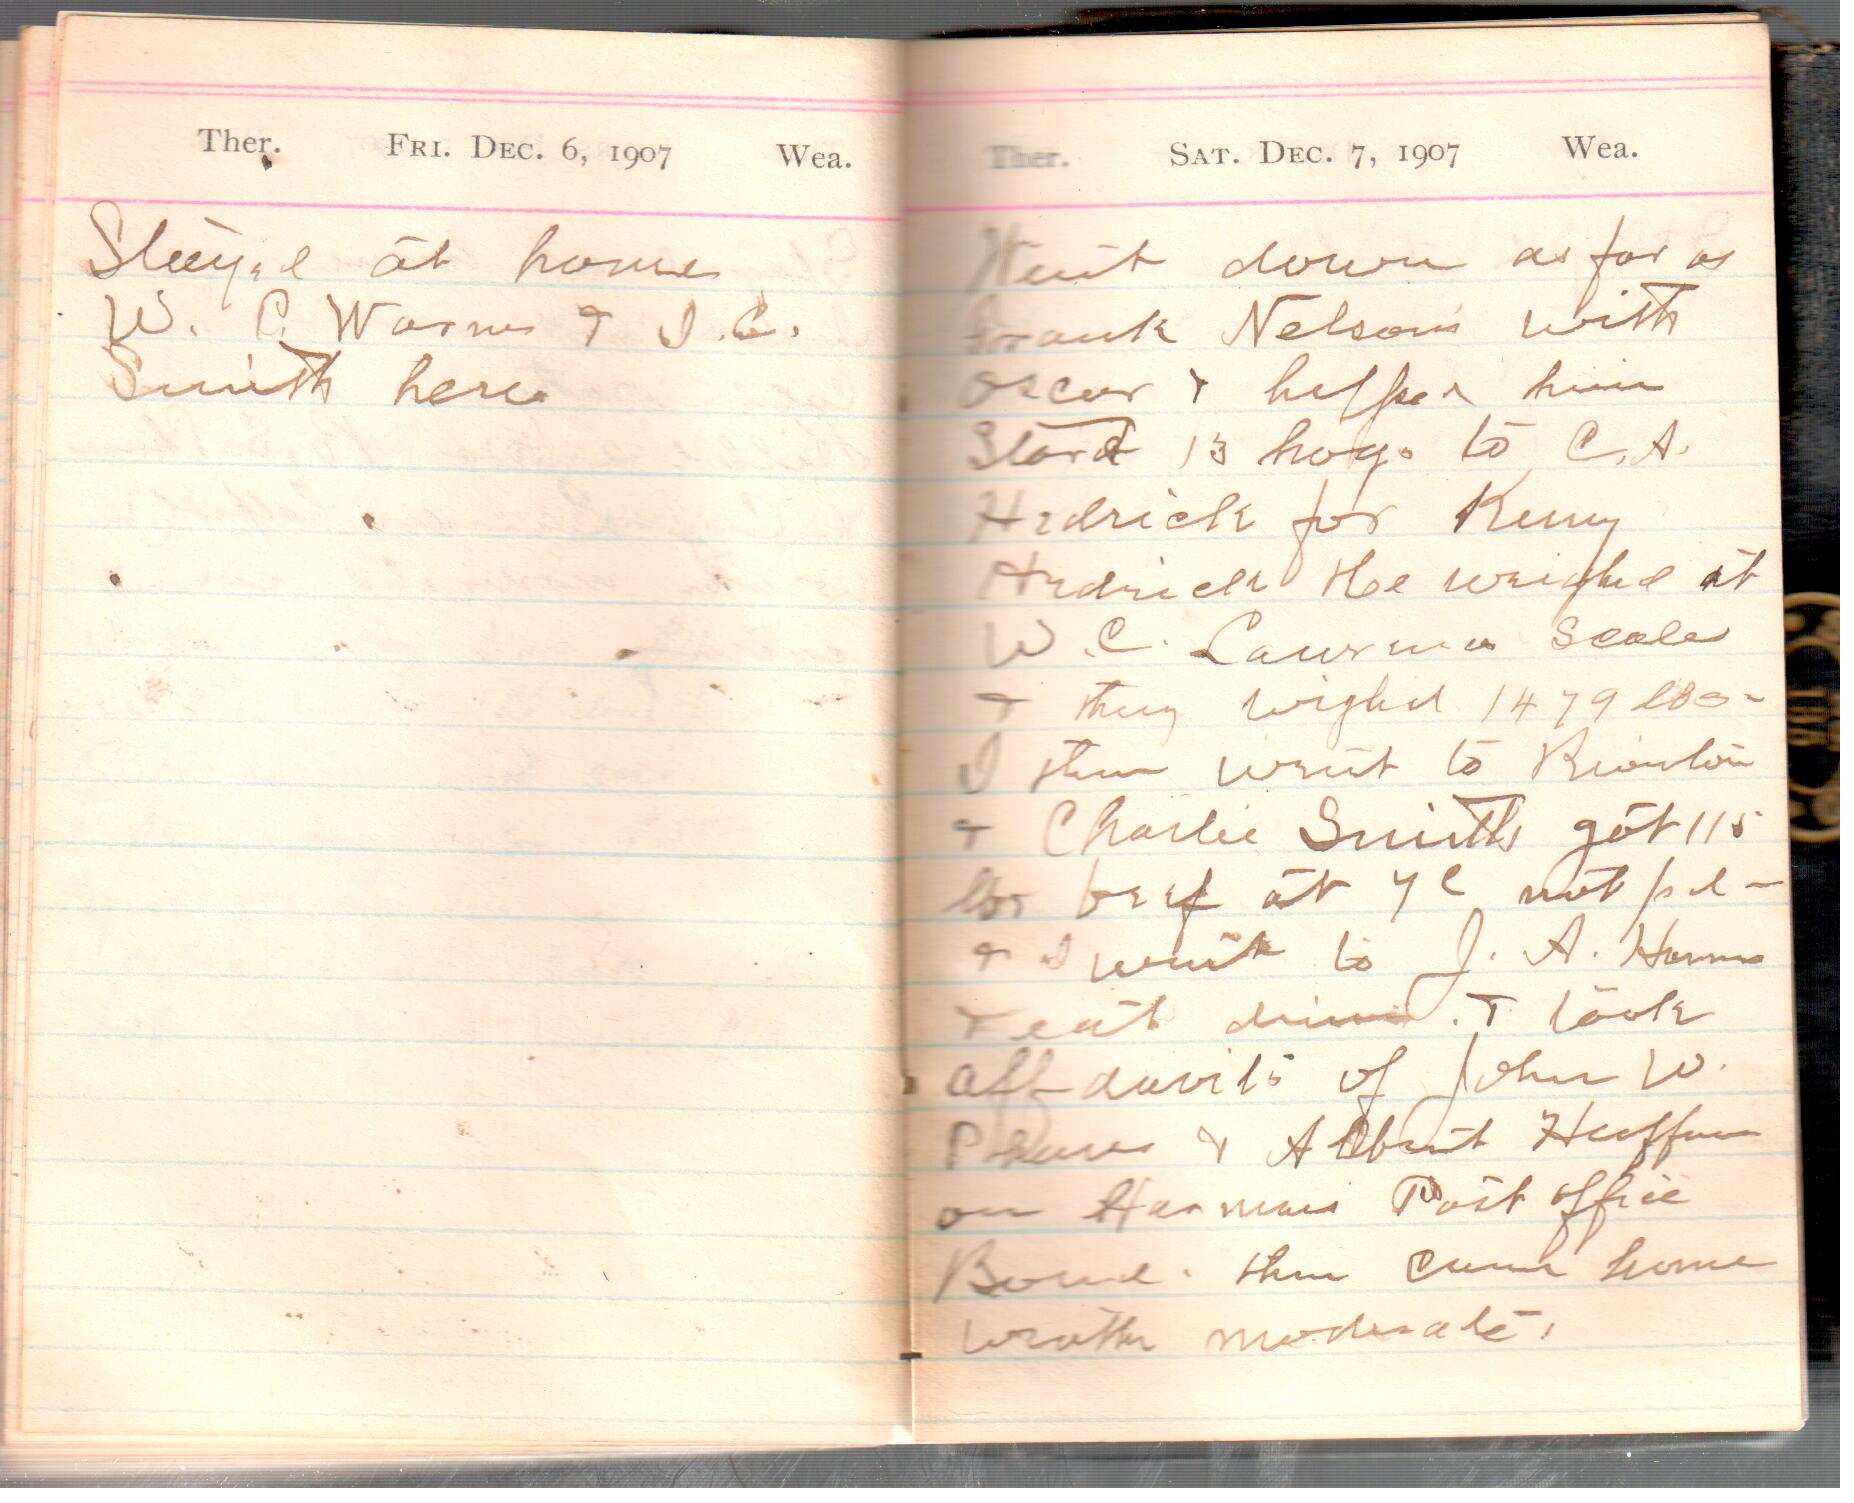 Ther. FRI. DEC. 6, 1907 Wea.
Stayed at home
W. C. Warner & I. C.
Smith here
Ther. SAT. DEC. 7, 1907 Wea.
Went down as far as
Frank Nelsons with
Oscar & helped him
Start 13 hogs to C. A.
Hedrick for Kenny
Hedrick He weighed at
W. C. Lawrence Scales
& they wighed 1479 lbs-
I then went to
& Charlie Smiths got 115
lbs beef at 7c not pd-
& I went to J. A. Harmans
& eat dinner. & took
affidavits of John W.
& Albert Huffman
on Harmans Post office
Bond. then came home
weather moderate.